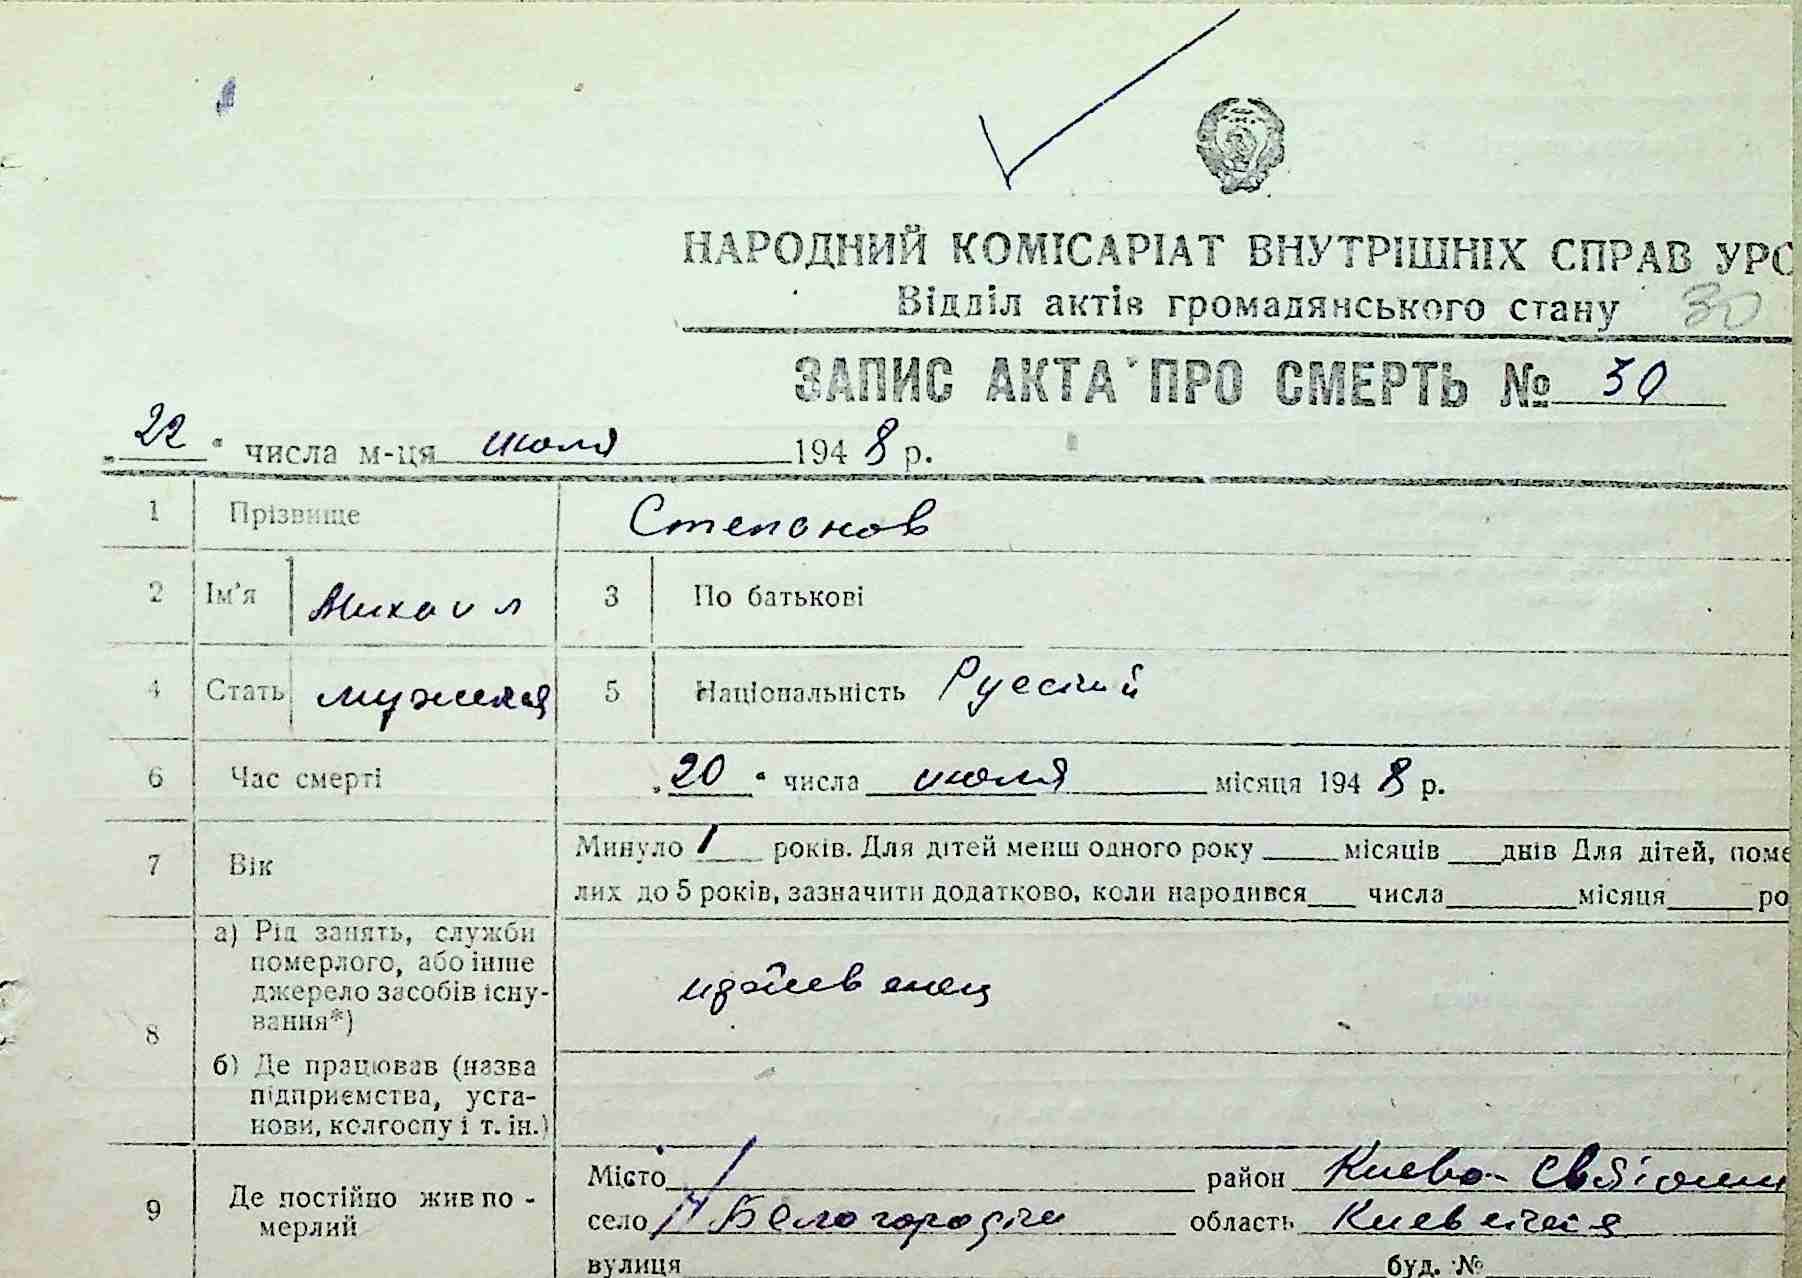 НАРОДНИЙ КОМІСАРІАТ ВНУТРІШНІХ СПРАВ УРС
Відділ актів громадянського стану 30
ЗАПИС АКТА ПРО СМЕРТЬ № 30
„22" числа м-ця июля 1948 р.
1 Прізвище Степанов
2 Ім'я Михаил 3 По батькові
4 Стать мужская 5 Національність Русский
6 Час смерті „20" числа июля місяця 1948 р.
7 Вік Минуло 1 років. Для дітей менш одного року місяців днів Для дітей, поме
лих до 5 років, зазначити додатково, коли народився числа місяця ро
8 а) Рід занять, служби
померлого, або інше
джерело засобів існу-
вання*) иждивенец
б) Де працював (назва
підприємства, уста-
нови, колгоспу і т. ін.)
9 Де постійно жив по-
мерлий
Місто район Киево-Святошин
село Белогородка область Киевская
вулиця буд. №